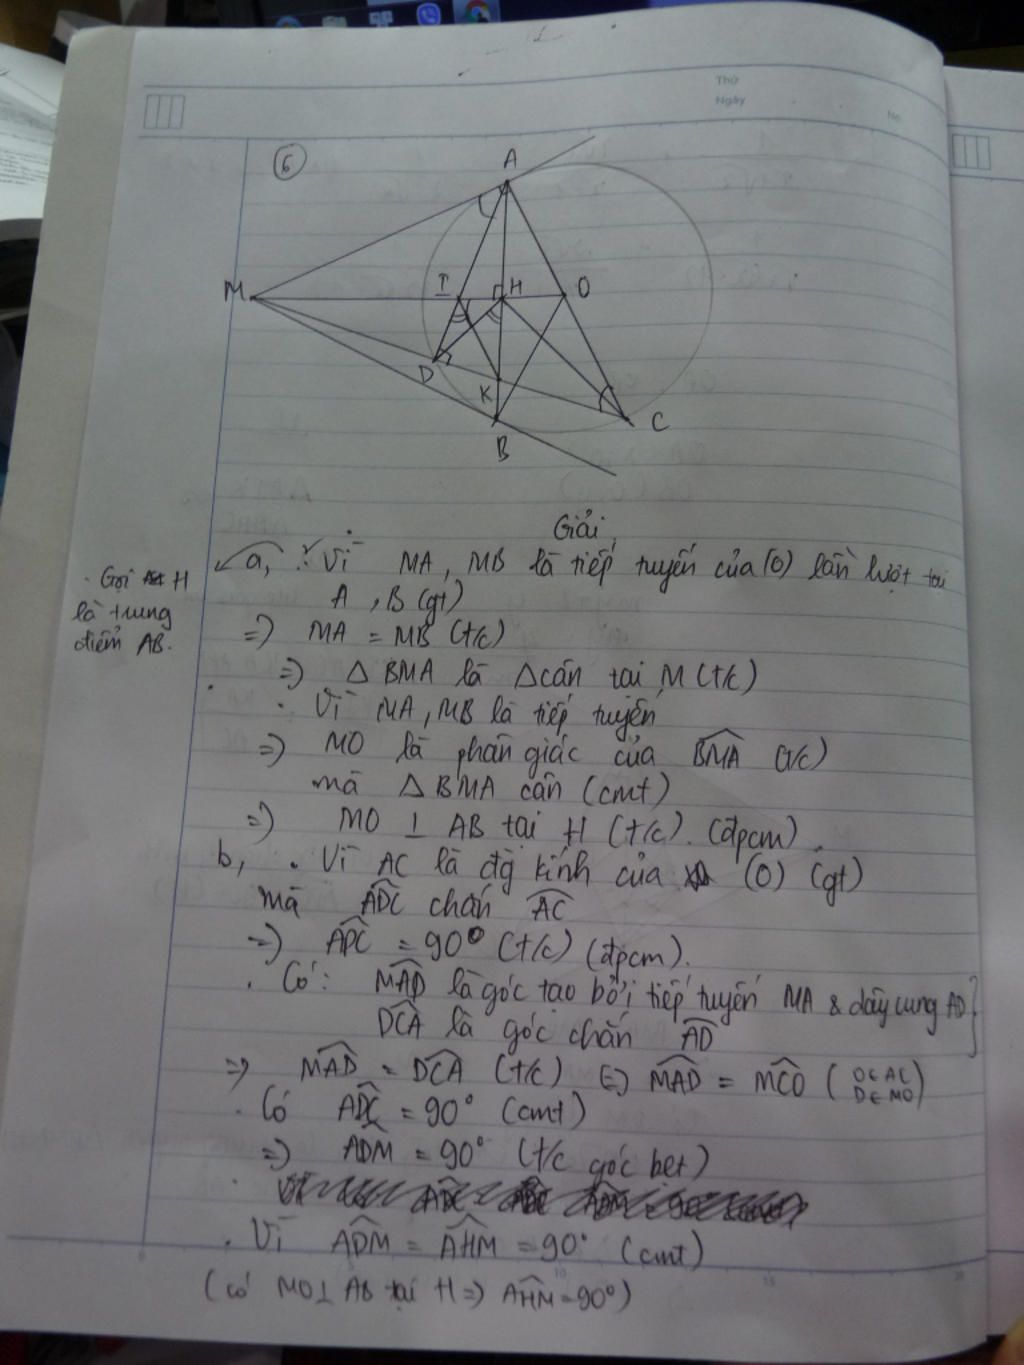 Thứ
Ngày
No
6
A
M
I
H
O
D
K
B
C
Giải
a, Vì MA, MB là tiếp tuyến của (O) lần lượt tại
A, B (gt)
. Gọi H
là trung
điểm AB.
=> MA = MB (t/c)
=> △ BMA là △ cân tại M (t/c)
. Vì MA, MB là tiếp tuyến
=> MO là phân giác của BMA (t/c)
mà △ BMA cân (cmt)
=> MO ⊥ AB tại H (t/c). (đpcm).
b, . Vì AC là đg kính của (O) (gt)
mà ADC chắn AC
=> ADC = 90° (t/c) (đpcm).
. Có: MAD là góc tạo bởi tiếp tuyến MA & dây cung AD
DCA là góc chắn AD
=> MAD = DCA (t/c) <=> MAD = MCO (O∈AC
D∈MO)
. Có ADC = 90° (cmt)
=> ADM = 90° (t/c góc bẹt)
. Vì ADM = AHM = 90° (cmt)
(có MO⊥AB tại H => AHM = 90°)